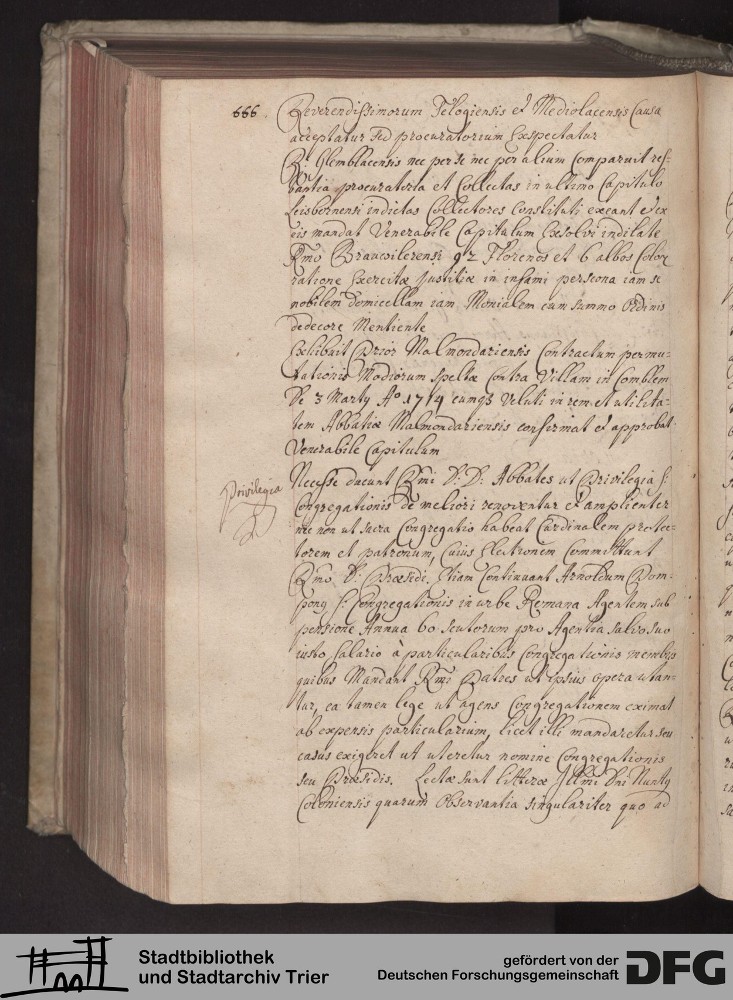 666. Reverendissimorum Telogiensis et Mediolacensis Causa
acceptatur sed procuratorium Exspectatur
R. Gemblacensis nec per se nec per alium Comparuit
procuratoria et Collectas in ultimo Capitulo
Leisbornensi indictas Collectores Constituti exeant et ex
eis mandat Venerabile Capitulum Exsolvi indilate
Rmo Brauwilerensi 92 Florenos et 6 albos Colon
ratione Exercitæ justitiæ in infami persona iam se
nobilem domicellam iam Monialem cum summo Ordinis
dedecore Mentiente
Exhibuit Prior Malmondariensis Contractum permu-
tationis Modiorum speltæ Contra Villam in Comblem
De 3 Marty Ao 1714 eumqs veluti in rem et utilita-
tem Abbatiæ Malmondariensis confirmat et approbat
Venerabile Capitulum
Privilegia
Necesse ducunt Rmi D: D: Abbates ut Privilegia S:
Congregationis de meliori renoventur et amplientur
nec non ut sacra Congregatio habeat Cardinalem protec-
torem et patronum, Cuius Electionem Committunt
Rmo D: Præsidi. Etiam Continuant Arnoldum Dom:
pony S: Congregationis in urbe Romana Agentem sub
pensione Annua 60 scutorum pro Agentia salvo suo
iusto salario à particularibus Congregationis membris
quibus Mandant Rmi Patres ut ipsius opera utan-
tur, ea tamen lege ut agens Congregationem eximat
ab expensis particularium, licet illi mandaretur seu
casus exigeret ut uteretur nomine Congregationis
seu Præsidis. Lectæ sunt litteræ Illmi Dni Nunty
Coloniensis quarum Observantia singulariter quo ad
Stadtbibliothek
und Stadtarchiv Trier
gefördert von der
Deutschen Forschungsgemeinschaft
DFG